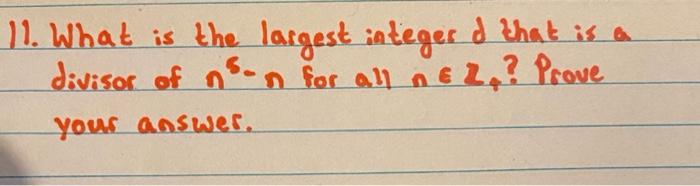 11. What is the largest integer d that is a
divisor of n⁵-n for all n ∈ Z₊? Prove
your answer.